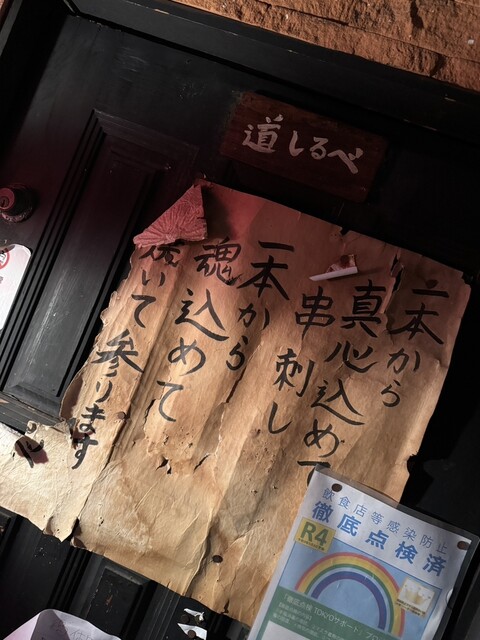 道しるべ
一本から
真心込めて
串刺し
一本から
魂込めて
焼いて参ります
飲食店等感染防止
徹底点検済
R4
「徹底点検 TOKYOサポート」